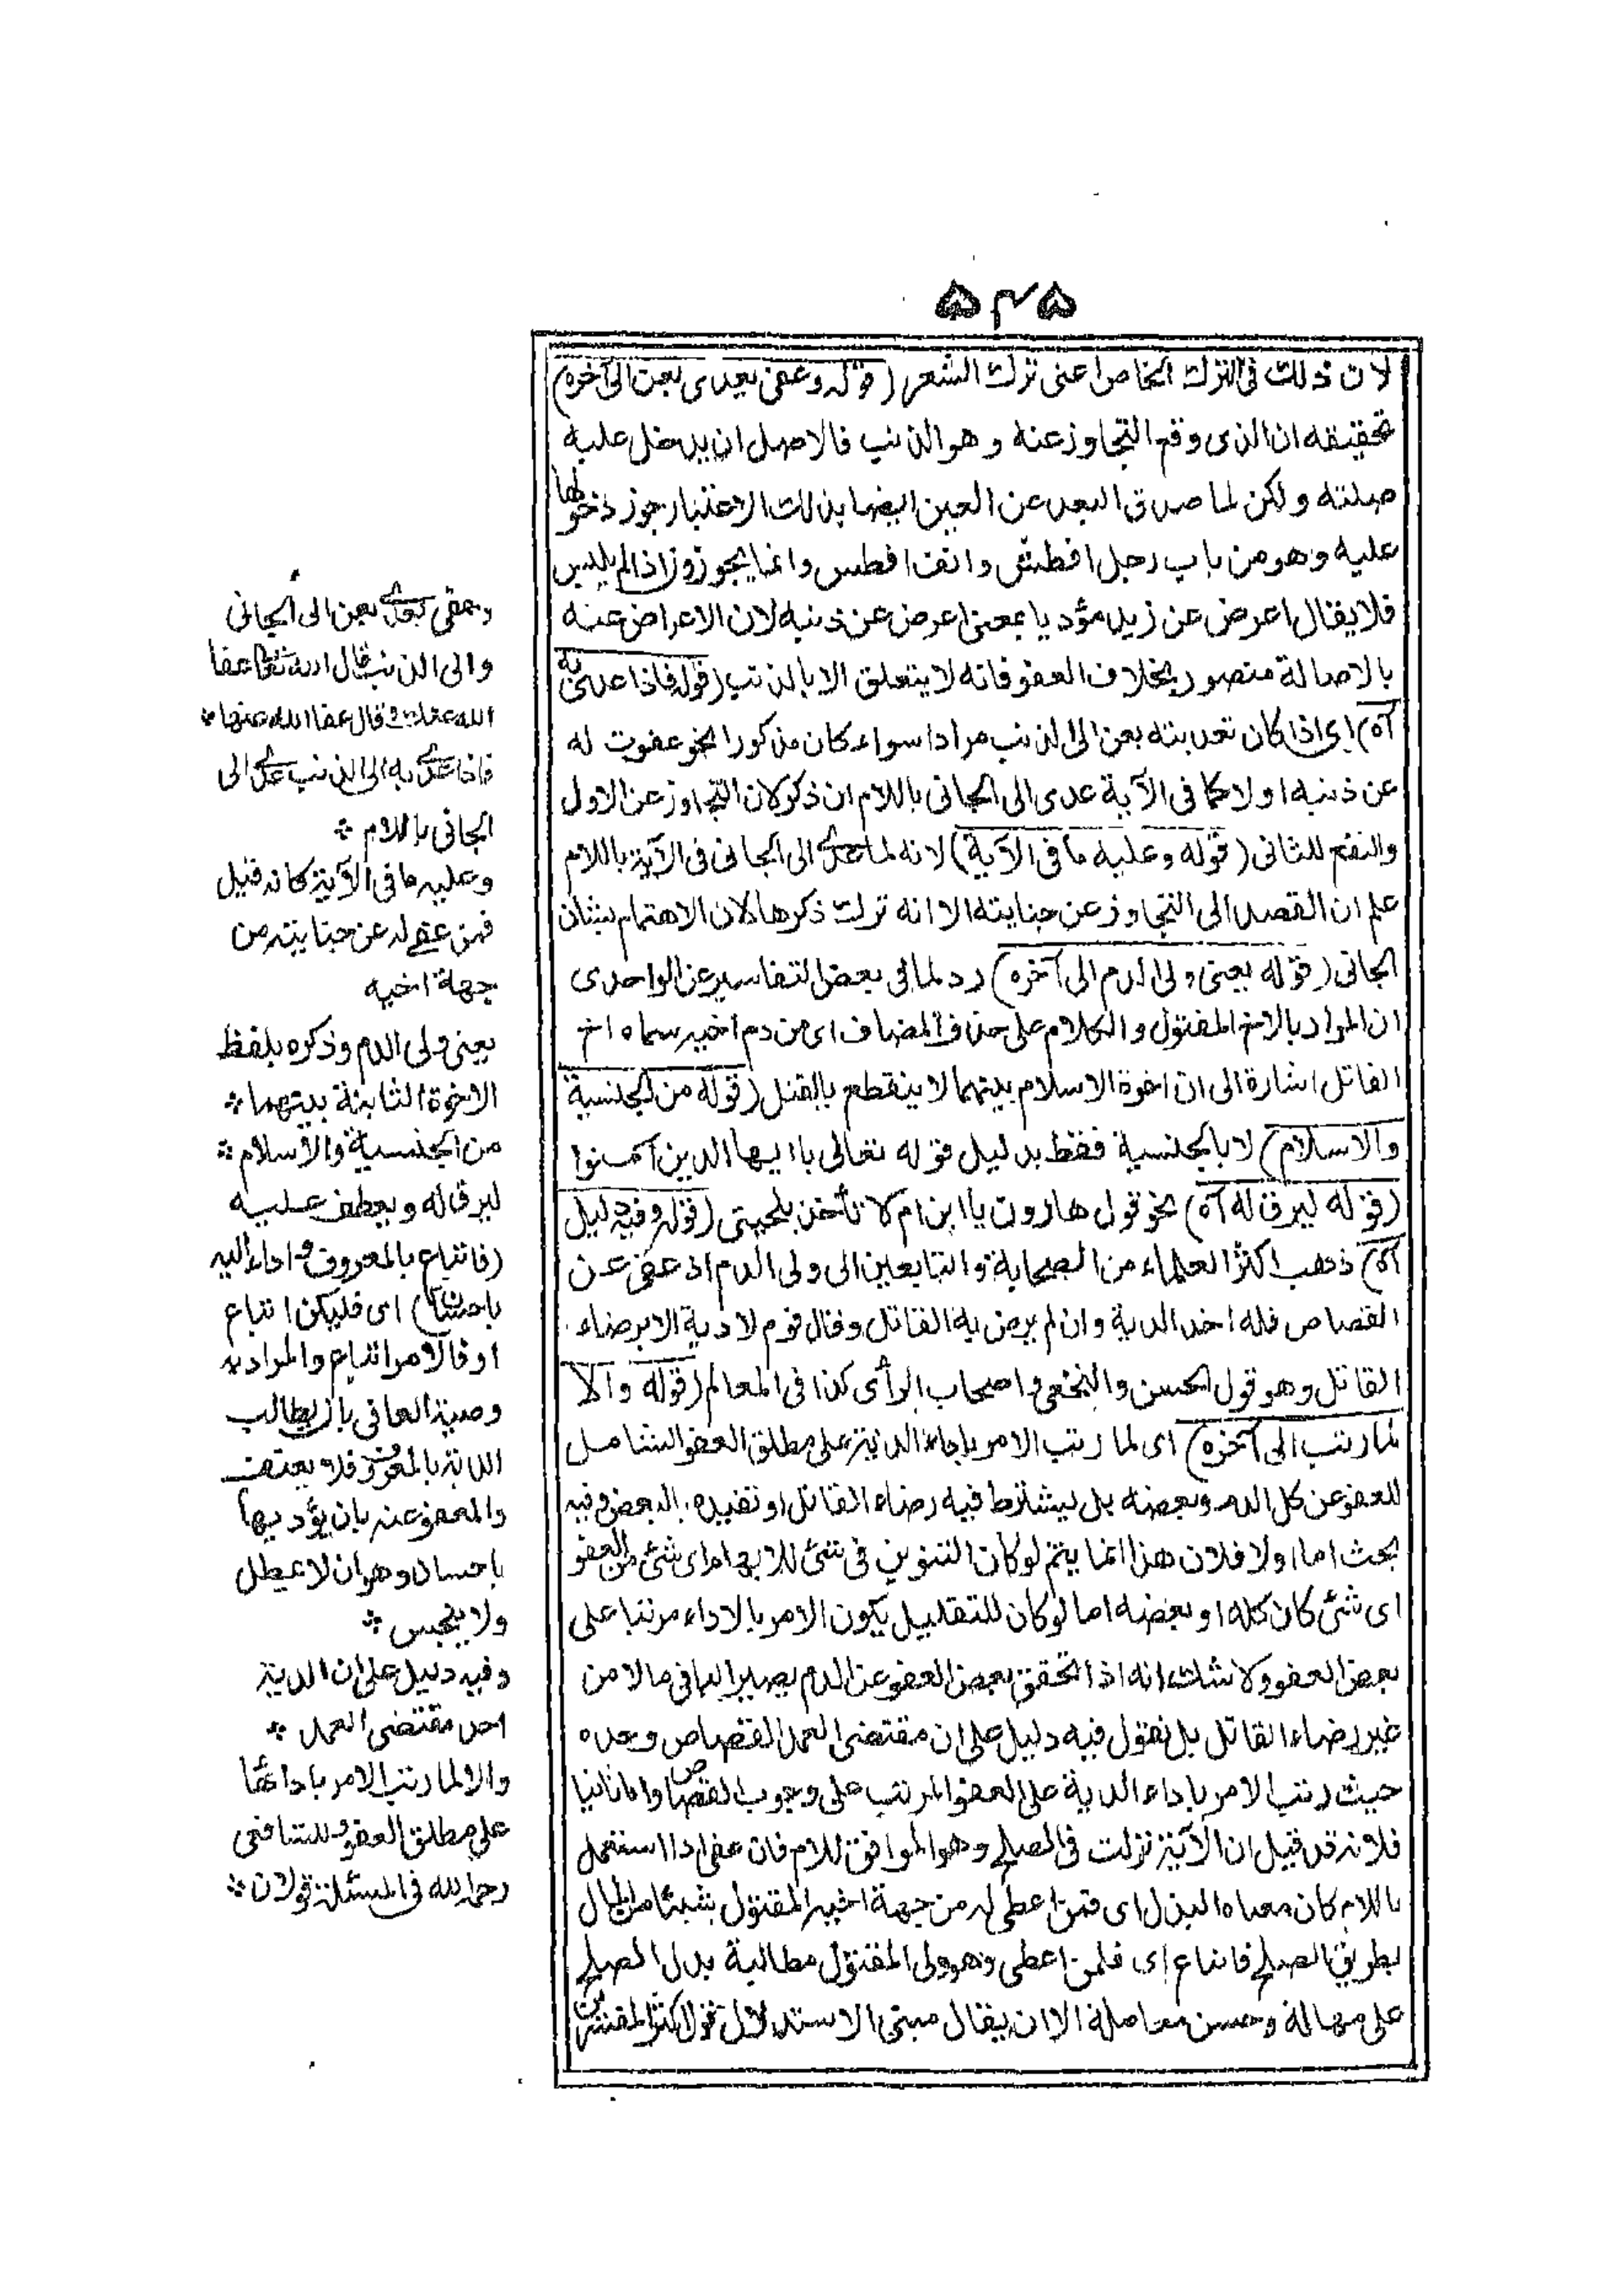 ۵۴۵
لان ذلك فى الترك الخاص اعنى ترك الشعر (قوله وعفى يعدى بعن الى آخره)
تحقيقه ان الذى وقع التجاوز عنه وهو الذنب فالاصل ان يدخل عليه
صلته ولكن لما صدق البعد عن العين ايضا بذلك الاعتبار جوز دخولها
عليه وهو من باب رجل افطس وانف افطس وانما يجوزون اذا لم يلبس
فلا يقال اعرض عن زيد مؤديا بمعنى اعرض عن ذنبه لان الاعراض عنه
بالاصالة متصور بخلاف العفو فانه لا يتعلق الا بالذنب (قوله فاذا عدى به
آه) اى اذا كان تعديته بعن الى الذنب مرادا سواء كان مذكورا نحو عفوت له
عن ذنبه اولا كما فى الآية عدى الى الجانى باللام ان ذكر لان التجاوز عن الاول
والنفع للثانى (قوله وعليه ما فى الآية) لانه لما عدى الى الجانى فى الآية باللام
علم ان القصد الى التجاوز عن جنايته الا انه ترك ذكرها لان الاهتمام بشان
الجانى (قوله يعنى ولى الدم الى آخره) رد لما فى بعض التفاسير عن الواحدى
ان المراد بالاخ المقتول والكلام على حذف المضاف اى من دم اخيه سماه اخ
القاتل اشارة الى ان اخوة الاسلام بينهما لا ينقطع بالقتل (قوله من الجنسية
والاسلام) لا بالجنسية فقط بدليل قوله تعالى يا ايها الذين آمنوا
(قوله ليرق له آه) نحو قول هارون يا ابن ام لا تأخذ بلحيتى (قوله وفيه دليل
آه) ذهب اكثر العلماء من الصحابة والتابعين الى ولى الدم اذ عفى عن
القصاص فله اخذ الدية وان لم يرض به القاتل وقال قوم لا دية الا برضاء
القاتل وهو قول الحسن والنخعى واصحاب الرأى كذا فى المعالم (قوله والا
لما رتب الى آخره) اى لما رتب الامر باداء الدية على مطلق العفو الشامل
للعفو عن كل الدم وبعضه بل يشترط فيه رضاء القاتل او تقييده بالبعض وفيه
بحث اما اولا فلان هذا انما يتم لو كان التنوين فى شئ للابهام اى شئ من العفو
اى شئ كان كله او بعضه اما لو كان للتقليل يكون الامر بالاداء مرتبا على
بعض العفو ولا شك انه اذا تحقق بعض العفو عن الدم يصير الباقى مالا من
غير رضاء القاتل بل نقول فيه دليل على ان مقتضى العمد القصاص وحده
حيث رتب الامر باداء الدية على العفو المرتب على وجوب القصاص واما ثانيا
فلانه قد قيل ان الآية نزلت فى الصلح وهو الموافق للام فان عفى اذا استعمل
باللام كان معناه البذل اى فمن اعطى له من جهة اخيه المقتول شيئا من المال
بطريق الصلح فاتباع اى فلمن اعطى وهو ولى المقتول مطالبة بدل الصلح
على مهالة وحسن معاملة الا ان يقال مبنى الاستدلال قول اكثر المفسرين
وعفى يعدى بعن الى الجانى
والى الذنب قال الله تعالى عفا
الله عنك وقال عفا الله عنها *
فاذا عدى به الى الذنب عدى الى
الجانى باللام *
وعليه ما فى الآية كانه قيل
فمن عفى له عن جنايته من
جهة اخيه
يعنى ولى الدم وذكره بلفظ
الاخوة الثابتة بينهما *
من الجنسية والاسلام *
ليرق له ويعطف عليه
(فاتباع بالمعروف واداء اليه
باحسان) اى فليكن اتباع
او فالامر اتباع والمراد به
وصية العافى بان يطالب
الدية بالمعروف فلا يعنف
والمعفو عنه بان يؤديها
باحسان وهو ان لا يمطل
ولا يبخس *
وفيه دليل على ان الدية
احد مقتضى العمد *
والا لما رتب الامر بادائها
على مطلق العفو وللشافعى
رحمه الله فى المسئلة قولان *